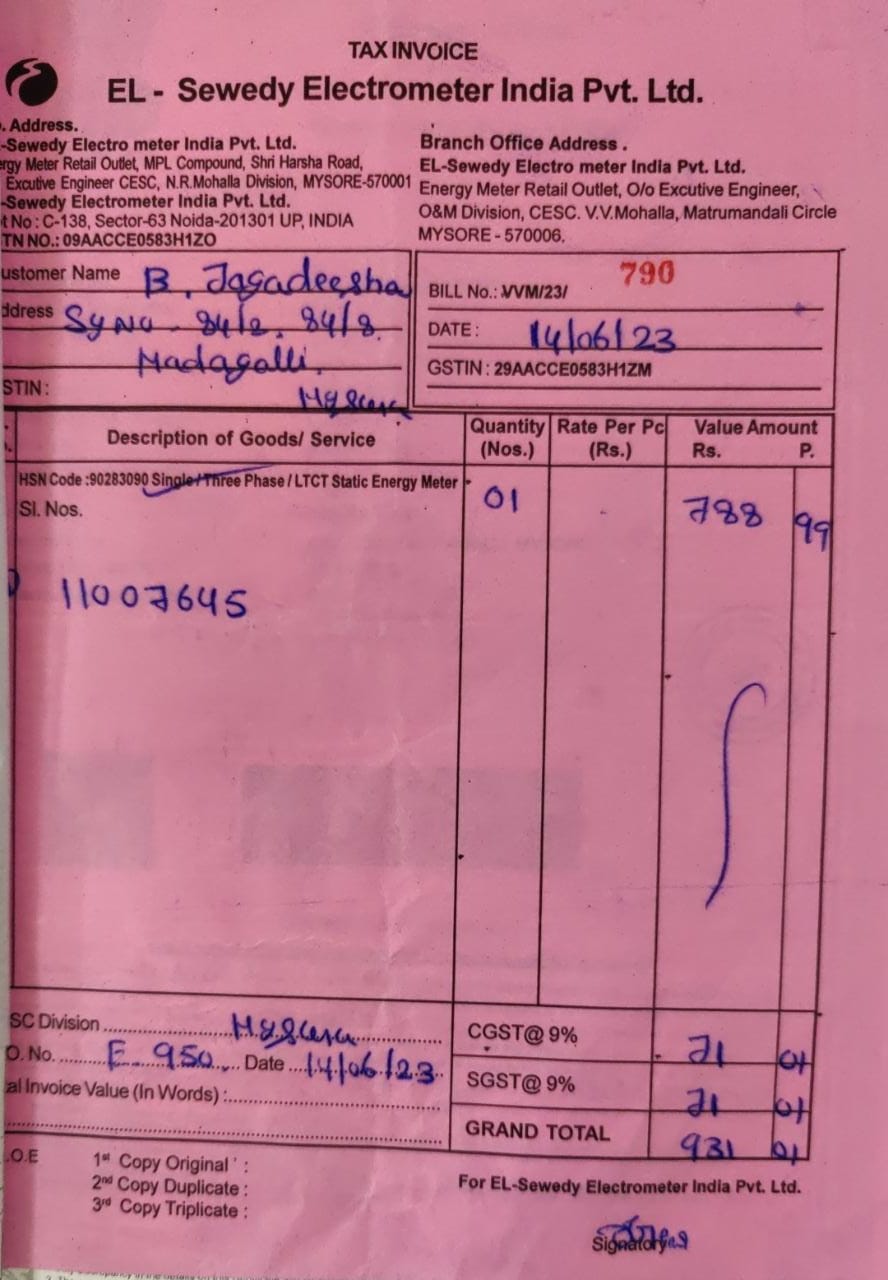 TAX INVOICE
EL - Sewedy Electrometer India Pvt. Ltd.
. Address.
-Sewedy Electro meter India Pvt. Ltd.
ergy Meter Retail Outlet, MPL Compound, Shri Harsha Road,
Excutive Engineer CESC, N.R.Mohalla Division, MYSORE-570001
-Sewedy Electrometer India Pvt. Ltd.
t No : C-138, Sector-63 Noida-201301 UP, INDIA
TN NO.: 09AACCE0583H1ZO
Branch Office Address .
EL-Sewedy Electro meter India Pvt. Ltd.
Energy Meter Retail Outlet, O/o Excutive Engineer,
O&M Division, CESC. V.V.Mohalla, Matrumandali Circle
MYSORE - 570006.
ustomer Name B. Jagadeesha
ddress Sy No. 84/2, 84/8.
Madagalli,
STIN :
BILL No.: VVM/23/ 790
DATE : 14/06/23
GSTIN : 29AACCE0583H1ZM
Description of Goods/ Service Quantity (Nos.) Rate Per Pc (Rs.) Value Amount Rs. P.
HSN Code :90283090 Single/Three Phase / LTCT Static Energy Meter 01 788 99
Sl. Nos.
11007645
SC Division
O. No. E. 950 Date 14/06/23
al Invoice Value (In Words) :
CGST@ 9% 71 01
SGST@ 9% 71 01
GRAND TOTAL 931 01
.O.E 1st Copy Original :
2nd Copy Duplicate :
3rd Copy Triplicate :
For EL-Sewedy Electrometer India Pvt. Ltd.
Signatory